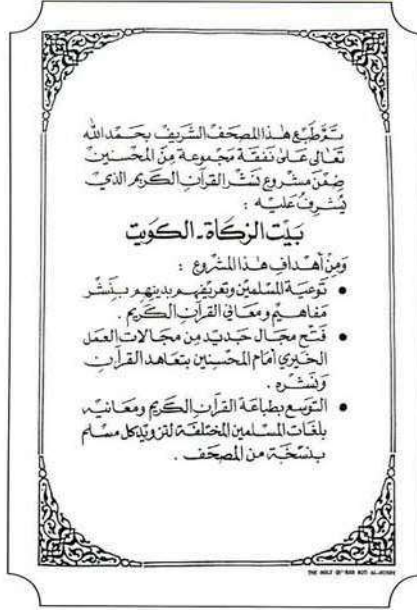 تم طبع هذا المصحف الشريف بحمد الله
تعالى على نفقة مجموعة من المحسنين
ضمن مشروع نشر القرآن الكريم الذي
يشرف عليه :
بيت الزكاة - الكويت
ومن أهداف هذا المشروع :
• توعية المسلمين وتعريفهم بدينهم بنشر
مفاهيم ومعاني القرآن الكريم .
• فتح مجال جديد من مجالات العمل
الخيري أمام المحسنين بتعاهد القرآن
ونشره .
• التوسع بطباعة القرآن الكريم ومعانيه
بلغات المسلمين المختلفة لتزويد كل مسلم
بنسخة من المصحف .
THE HOLY